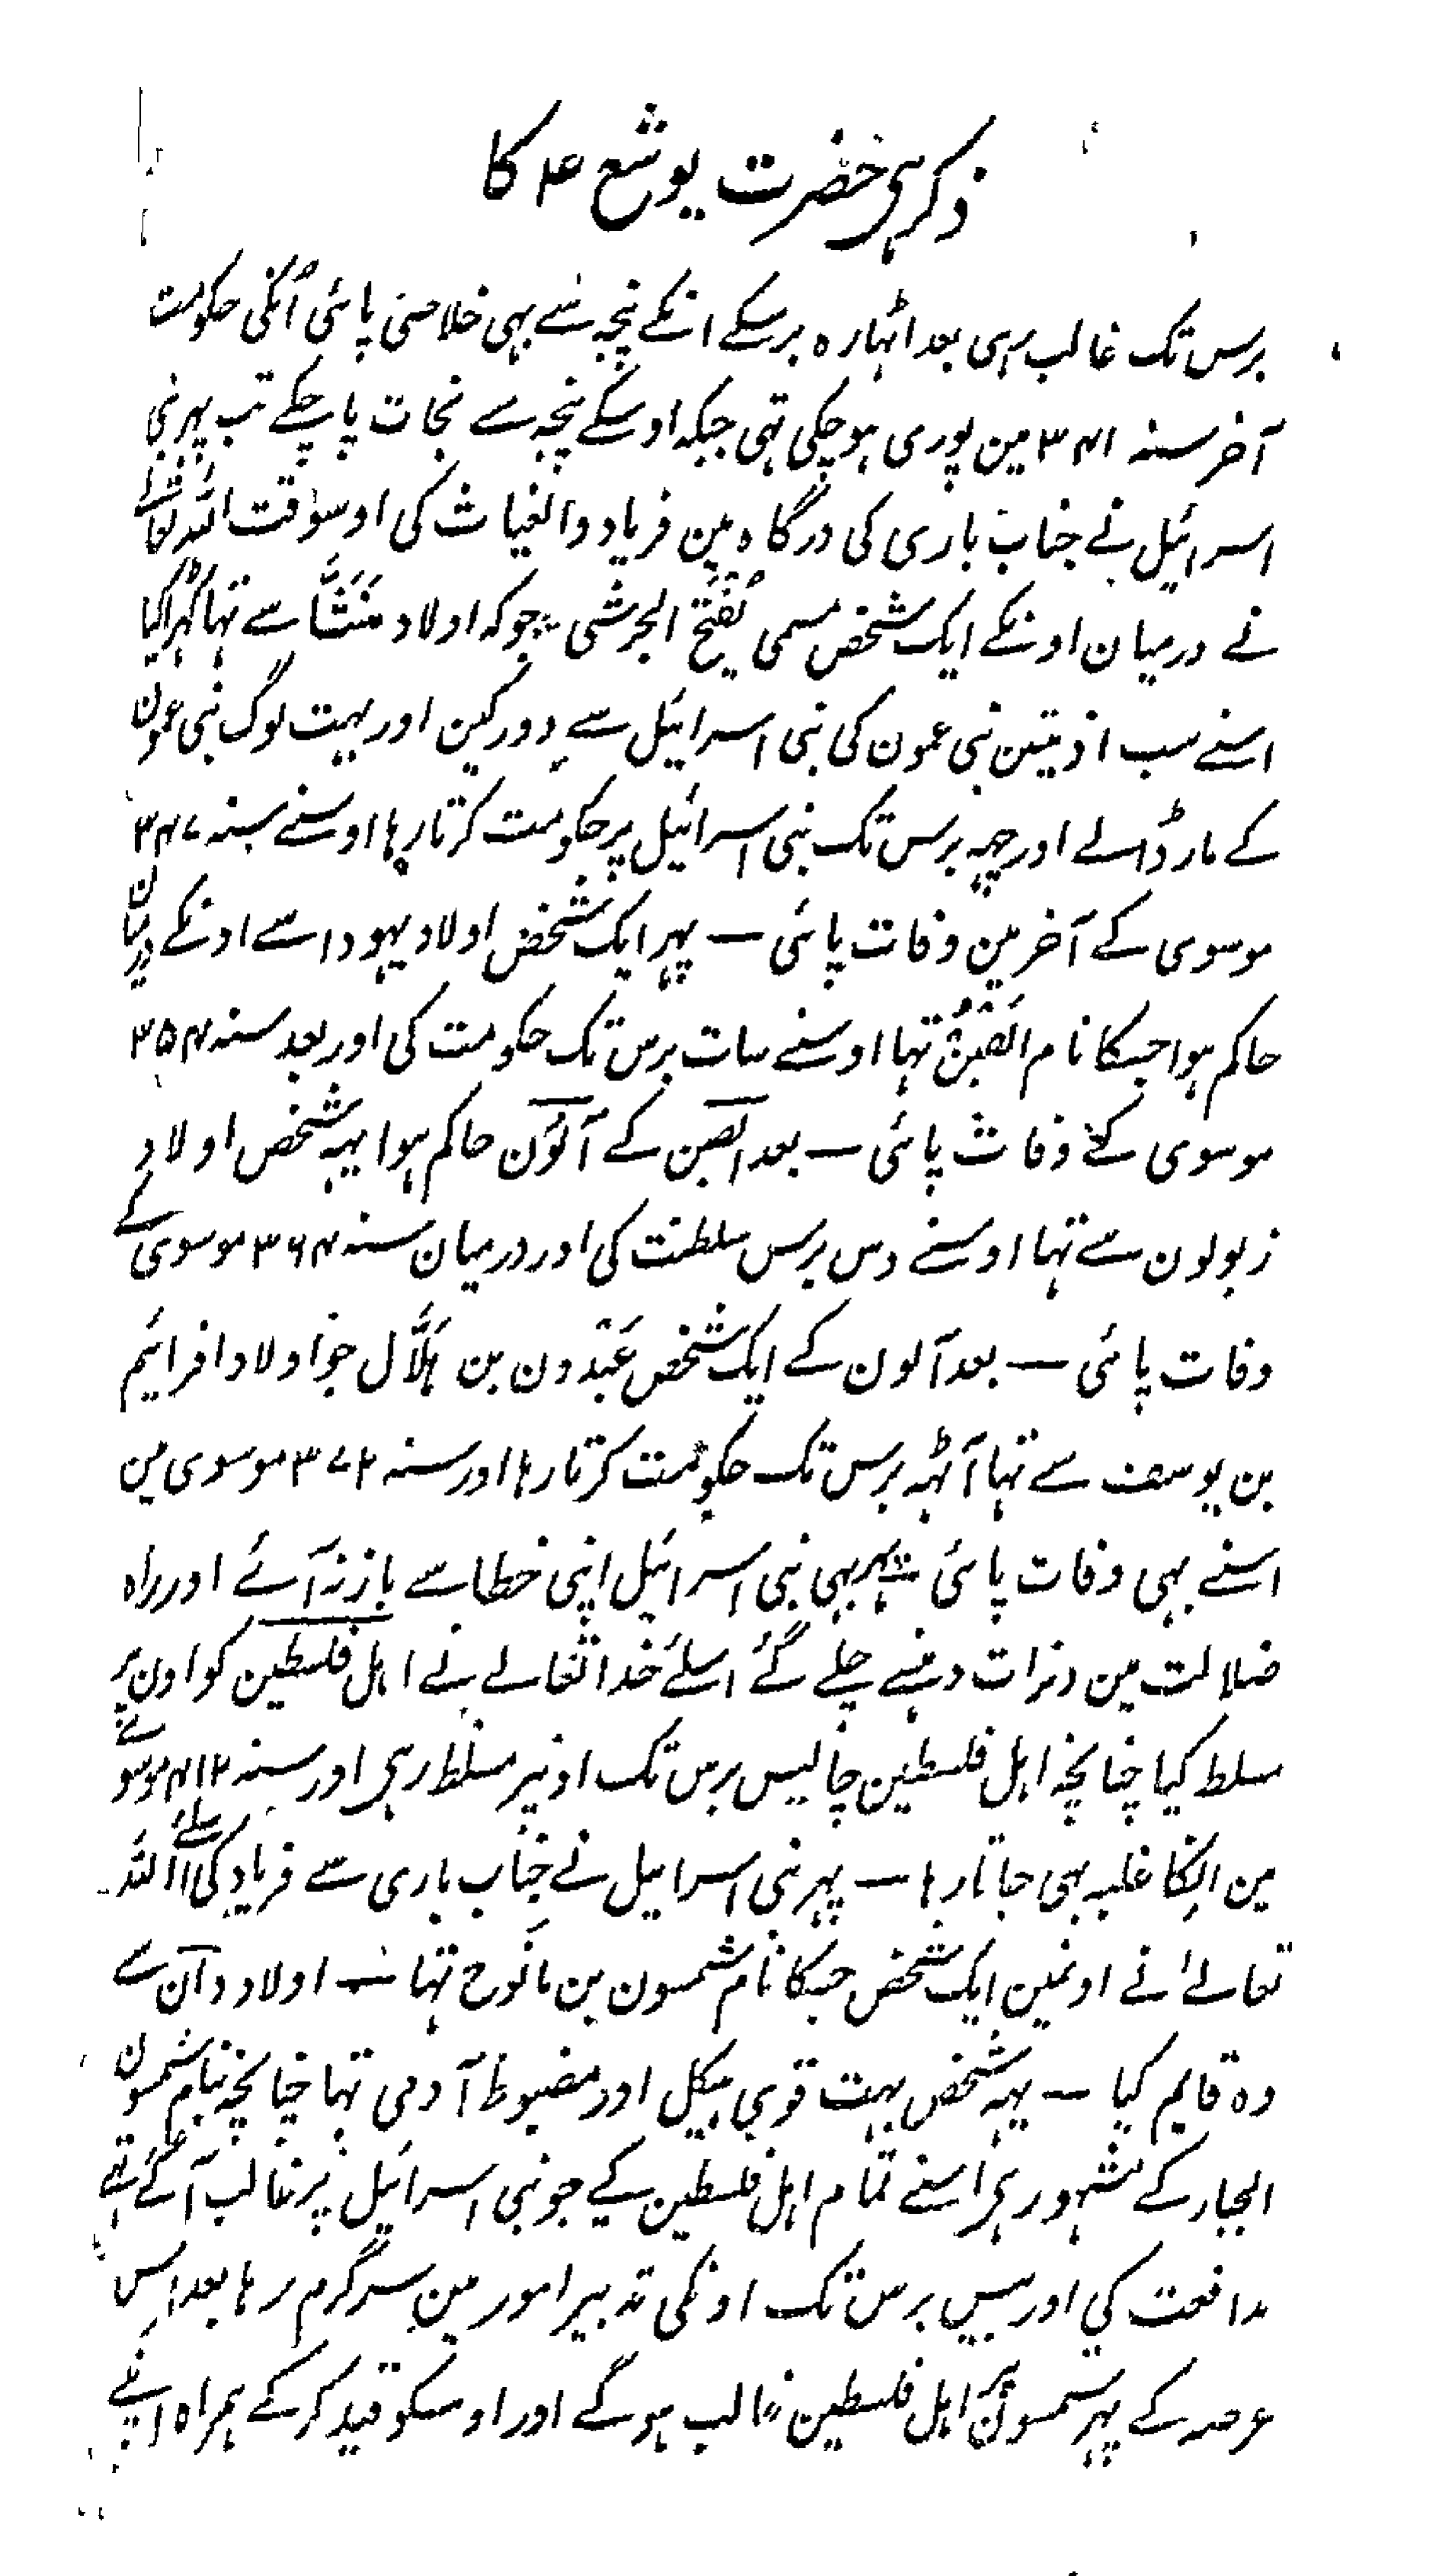 ذکر ہی حضرت یوشع ۴ کا
برس تک غالب رہی بعد اٹہارہ برسکے انکے پنجہ سے بہی خلاصی پائی اُنکی حکومت
آخر سنہ ۳۴۱ مین پوری ہوچکی تہی جبکہ اوسکے پنجہ سے نجات پاچکے تب پہر بنی
اسرائیل نے جناب باری کی درگاہ مین فریاد والغیاث کی اوسوقت اللہ تعالے
نے درمیان اونکے ایک شخص مسمی یُفتَح الجرشی جوکہ اولاد مَنَشَّا سے تہا کہڑا کیا
اسنے سب اذیتین بنی عمون کی بنی اسرائیل سے دور کین اور بہت لوگ بنی عمون
کے مار ڈالے اور چہہ برس تک بنی اسرائیل پر حکومت کرتا رہا اوسنے سنہ ۳۴۷
موسوی کے آخر مین وفات پائی — پہر ایک شخص اولاد یہودا سے اونکے درمیان
حاکم ہوا جسکا نام اَبصُن تہا اوسنے سات برس تک حکومت کی اور بعد سنہ ۳۵۴
موسوی کے وفات پائی — بعد ابصن کے آلون حاکم ہوا یہہ شخص اولاد
زبولون سے تہا اوسنے دس برس سلطنت کی اور درمیان سنہ ۳۶۴ موسوی کے
وفات پائی — بعد آلون کے ایک شخص عَبْدون بن ہَلَّال جو اولاد افرائیم
بن یوسف سے تہا آٹہہ برس تک حکومت کرتا رہا اور سنہ ۳۷۲ موسوی مین
اسنے بہی وفات پائی پہر بہی بنی اسرائیل اپنی خطا سے باز نہ آئے اور راہ
ضلالت مین دنرات دہنسے چلے گئے اسلئے خدا تعالے نے اہل فلسطین کو اون پر
مسلط کیا چنانچہ اہل فلسطین چالیس برس تک اونپر مسلط رہی اور سنہ ۴۱۲ موسوے
مین انکا غلبہ بہی جاتا رہا — پہر بنی اسرائیل نے جناب باری سے فریاد کی اسلئے اللہ
تعالے نے اونمین ایک شخص جسکا نام شمسون بن مانوح تہا — اولاد دان سے
وہ قایم کیا — یہہ شخص بہت قوی ہیکل اور مضبوط آدمی تہا چنانچہ بنام شمسون
الجبار کے مشہور ہی اسنے تمام اہل فلسطین کے جو بنی اسرائیل پر غالب آگئے تہے
مدافعت کی اور بیس برس تک اونکی تدبیر امور مین سرگرم رہا بعد اِس
عرصہ کے پہر شمسون پر اہل فلسطین غالب ہوگے اور اوسکو قید کرکے ہمراہ اپنے